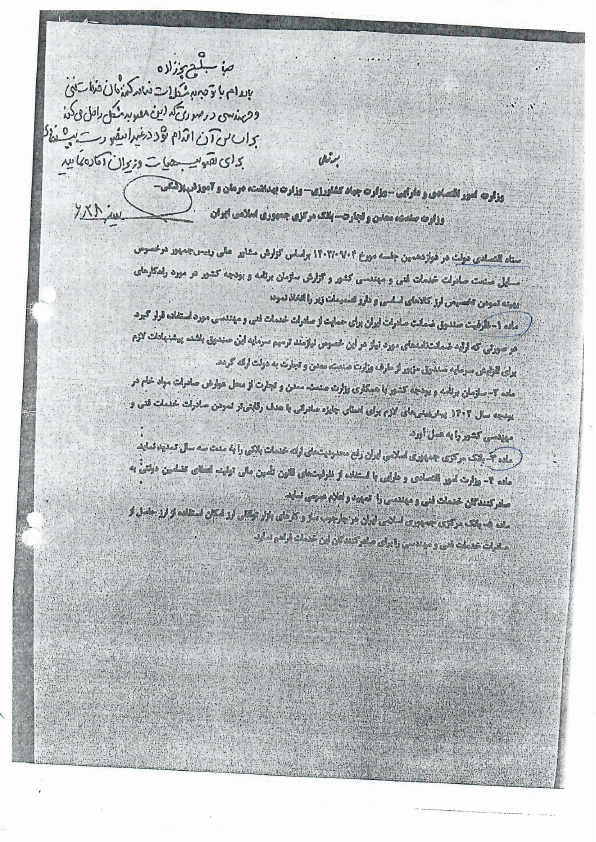 با توجه به مشکلات صادرکنندگان خدمات فنی
و مهندسی در صورتی که این مصوبه مشکل را حل می‌کند
بر اساس آن اقدام شود در غیر اینصورت پیشنهاد
برای تصویب هیات وزیران آماده نمایید
۶/۲۸
وزارت امور اقتصادی و دارایی – وزارت جهاد کشاورزی – وزارت بهداشت، درمان و آموزش پزشکی –
وزارت صنعت، معدن و تجارت – بانک مرکزی جمهوری اسلامی ایران
ستاد اقتصادی دولت در دوازدهمین جلسه مورخ ۱۴۰۳/۰۷/۰۴ براساس گزارش مشاور عالی رییس‌جمهور درخصوص
مسایل صنعت صادرات خدمات فنی و مهندسی کشور و گزارش سازمان برنامه و بودجه کشور در مورد راهکارهای
بهینه نمودن تخصیص ارز کالاهای اساسی و دارو تصمیمات زیر را اتخاذ نمود:
ماده ۱– ظرفیت صندوق ضمانت صادرات ایران برای حمایت از صادرات خدمات فنی و مهندسی مورد استفاده قرار گیرد.
در صورتی که ارایه ضمانت‌نامه‌های مورد نیاز در این خصوص نیازمند ترمیم سرمایه این صندوق باشد، پیشنهادات لازم
برای افزایش سرمایه صندوق مزبور از طرف وزارت صنعت، معدن و تجارت به دولت ارائه گردد.
ماده ۲– سازمان برنامه و بودجه کشور با همکاری وزارت صنعت، معدن و تجارت از محل عوارض صادرات مواد خام در
بودجه سال ۱۴۰۴ پیش‌بینی‌های لازم برای اعطای جایزه صادراتی با هدف رقابتی‌تر نمودن صادرات خدمات فنی و
مهندسی کشور را به عمل آورد.
ماده ۳– بانک مرکزی جمهوری اسلامی ایران رفع محدودیت‌های ارائه خدمات بانکی را به مدت سه سال تمدید نماید.
ماده ۴– وزارت امور اقتصادی و دارایی با استفاده از ظرفیت‌های قانون تأمین مالی تولید، اعطای تضامین دولتی به
صادرکنندگان خدمات فنی و مهندسی را تمهید و اعلام عمومی نماید.
ماده ۵– بانک مرکزی جمهوری اسلامی ایران در چارچوب ساز و کارهای بازار توافقی ارز امکان استفاده از ارز حاصل از
صادرات خدمات فنی و مهندسی را برای صادرکنندگان این خدمات فراهم نماید.